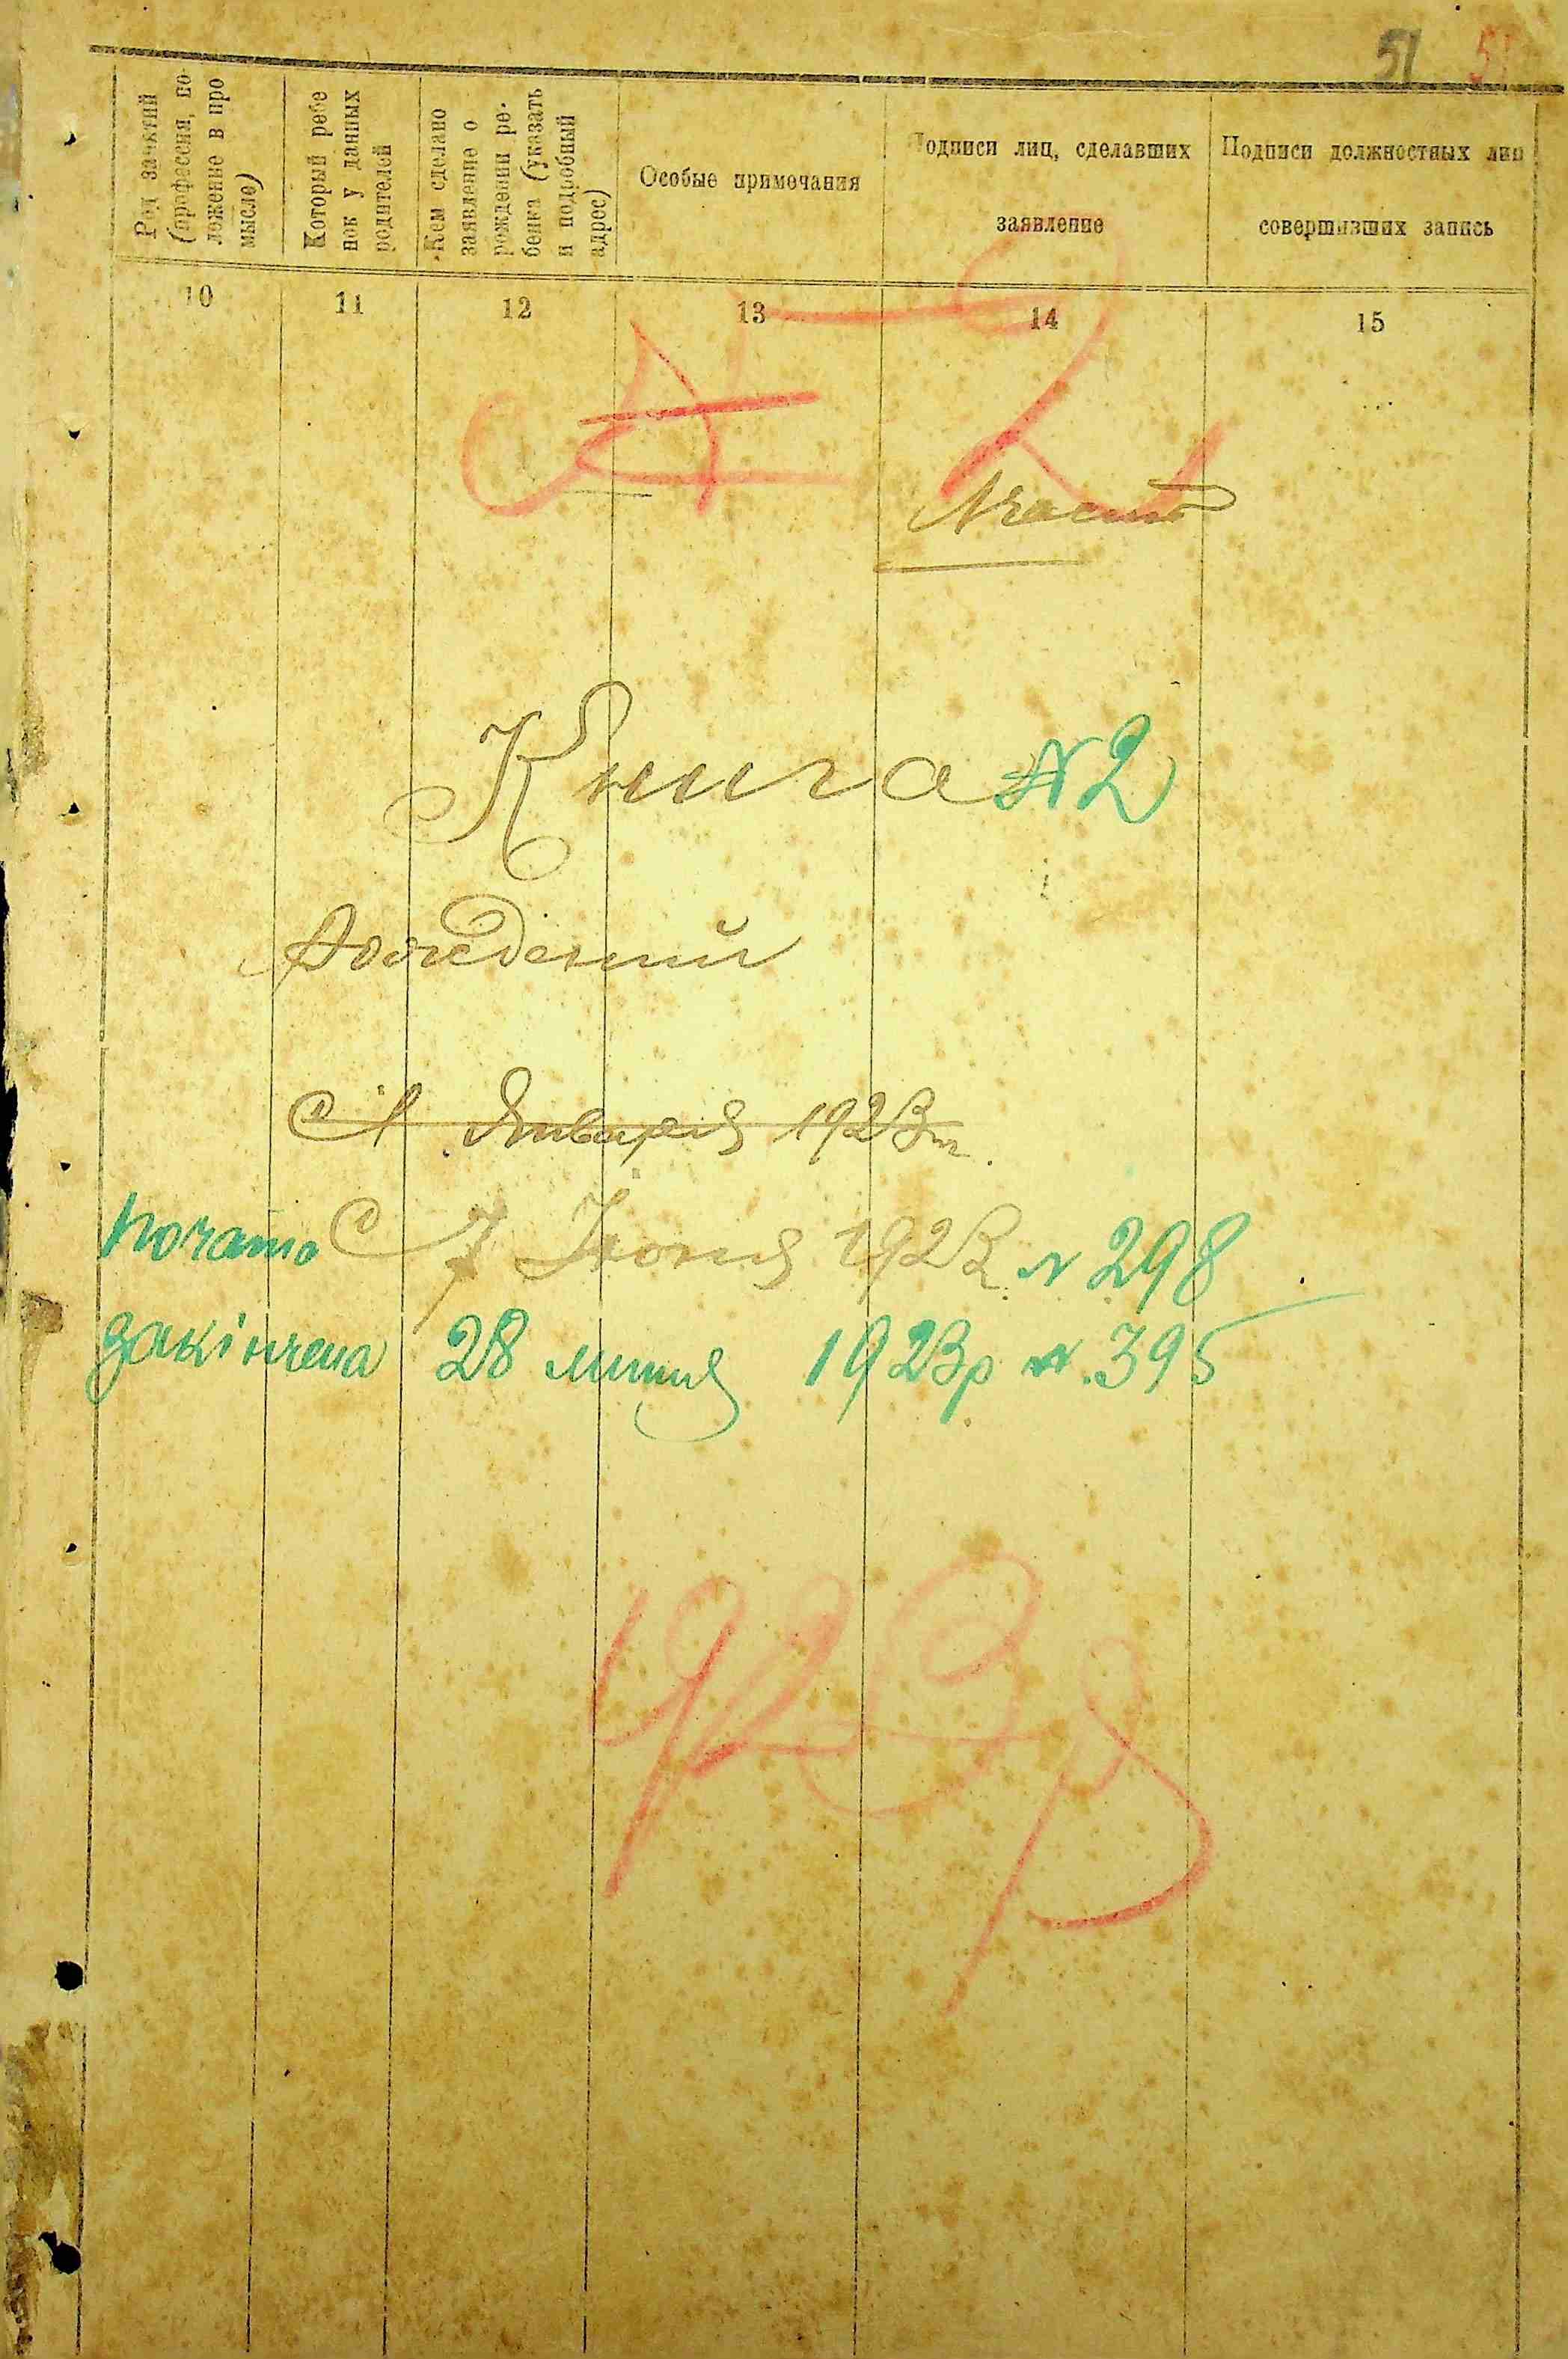 51 51
Род занятий
(профессия, по-
ложение в про
мысле)
Который ребе
нок у данных
родителей
Кем сделано
заявление о
рождении ре-
бенка (указать
и подробный
адрес)
Особые примечания
Подписи лиц, сделавших
заявление
Подписи должностных лиц
совершивших запись
10 11 12 13 14 15
№ 2
1 часть
Книга № 2
Рождений
С 1 Января 1923 г.
почато С 7 Июня 1923 № 298
закінчена 28 липня 1923р №.395
1923 р